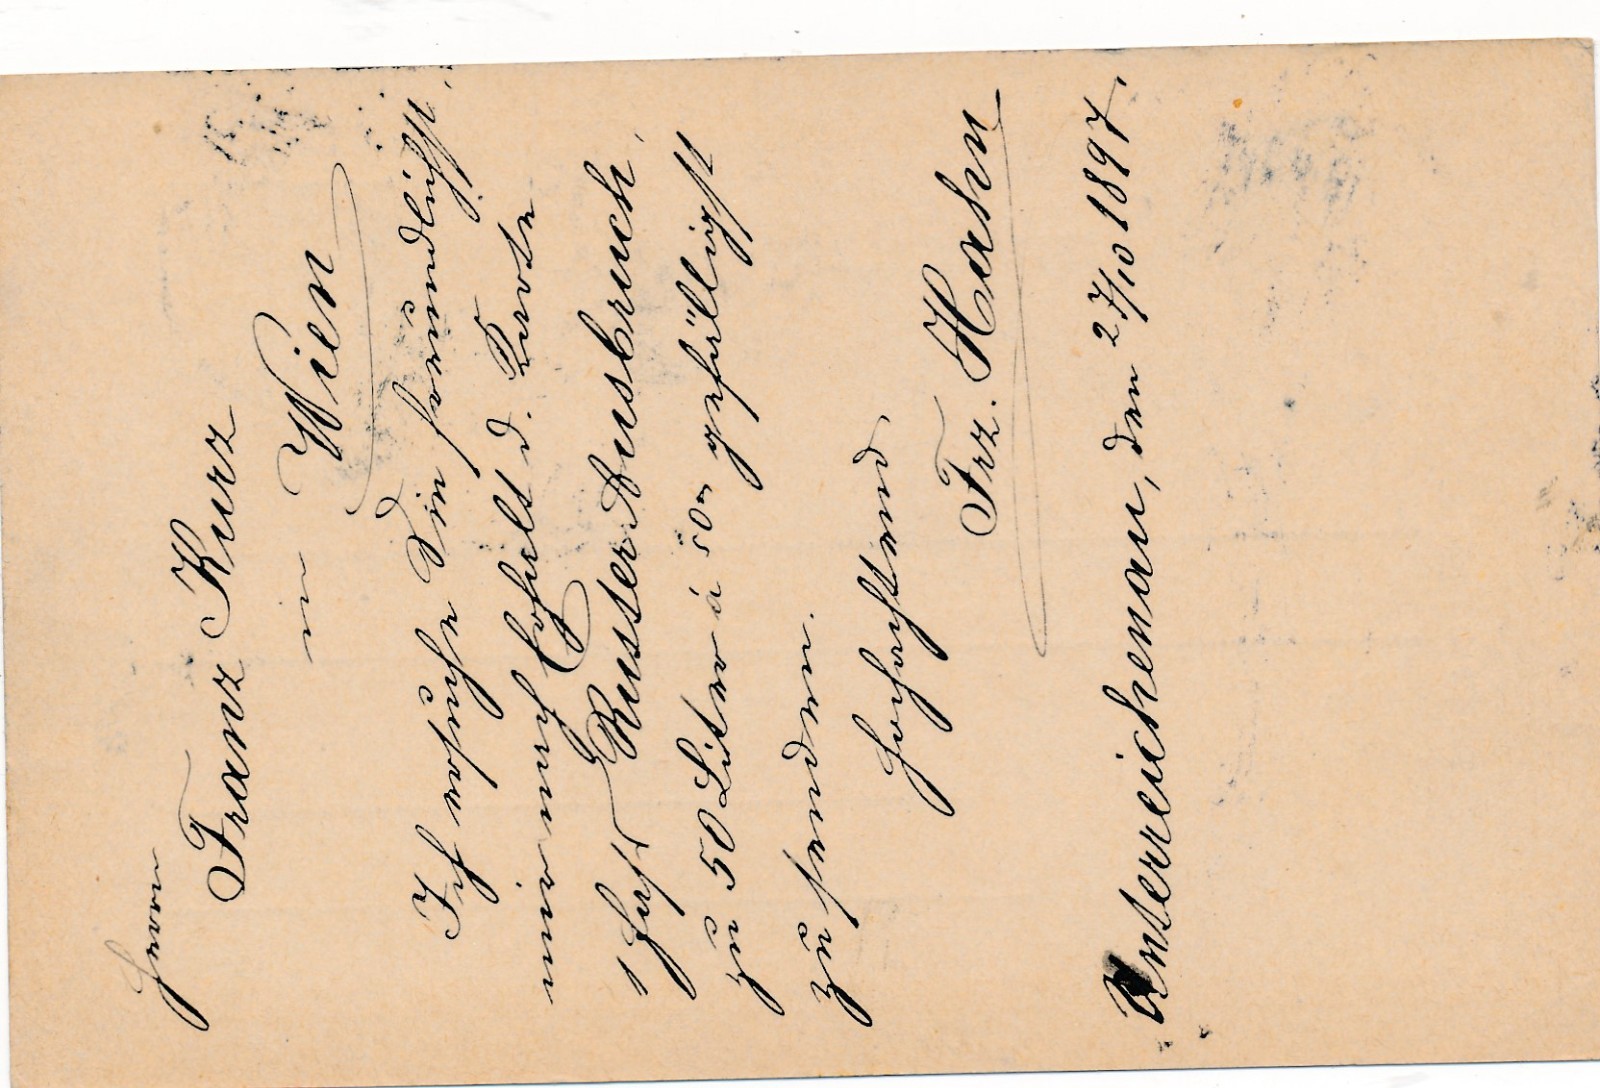 Herrn
Franz Kurz
in
Wien
Ich ersuche Sie freundlichst,
mir nach Erhalt d. Karte
1 Faß Ruster Ausbruch,
zu 50 Liter á 50 gefälligst
zu senden.
Hochachtend
Frz. Hahn
Unterreichenau, den 27/10 1897.